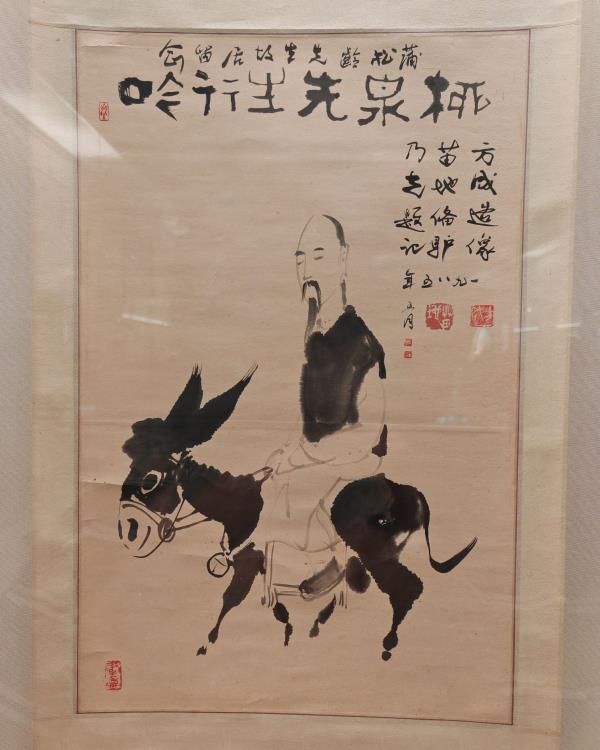 蒲松齡先生故居留念
柳泉先生行吟
方成造像
苗地俻驴
乃光題记
一九八五年
五月